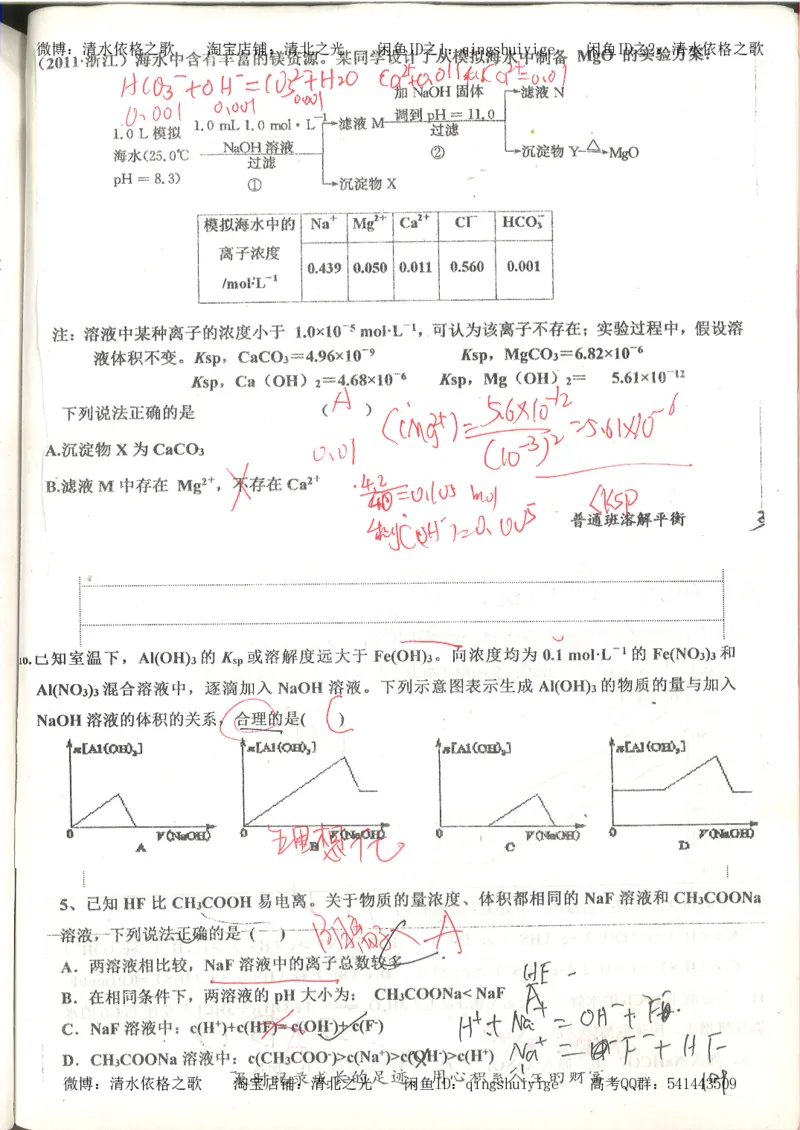 微博：清水依格之歌 淘宝店铺：清北之光 闲鱼ID之1：qingshuiyige 闲鱼ID之2：清水依格之歌
(2011·浙江)海水中含有丰富的镁资源。某同学设计了从模拟海水中制备 MgO 的实验方案：
HCO₃⁻+OH⁻=CO₃²⁻+H₂O
0.001 0.001 0.001
加 NaOH 固体 滤液 N
1.0 L 模拟 1.0 mL 1.0 mol·L⁻¹ 滤液 M 调到 pH＝11.0
海水(25.0℃ NaOH 溶液 过滤
pH＝8.3) 过滤 ② 沉淀物 Y △ MgO
① 沉淀物 X
模拟海水中的离子浓度/mol·L⁻¹ Na⁺ Mg²⁺ Ca²⁺ Cl⁻ HCO₃⁻
0.439 0.050 0.011 0.560 0.001
注：溶液中某种离子的浓度小于 1.0×10⁻⁵ mol·L⁻¹，可认为该离子不存在；实验过程中，假设溶
液体积不变。Ksp，CaCO₃＝4.96×10⁻⁹ Ksp，MgCO₃＝6.82×10⁻⁶
Ksp，Ca（OH）₂＝4.68×10⁻⁶ Ksp，Mg（OH）₂＝ 5.61×10⁻¹²
下列说法正确的是 （A）
c(Mg²⁺)=5.6×10⁻¹²/(10⁻³)²=5.61×10⁻⁶
A.沉淀物 X 为 CaCO₃
0.01
B.滤液 M 中存在 Mg²⁺，不存在 Ca²⁺
4.2/40=0.105 mol
<Ksp
c(OH⁻)=0.005
普通班溶解平衡 3
10.已知室温下，Al(OH)₃ 的 Ksp 或溶解度远大于 Fe(OH)₃。向浓度均为 0.1 mol·L⁻¹ 的 Fe(NO₃)₃ 和
Al(NO₃)₃ 混合溶液中，逐滴加入 NaOH 溶液。下列示意图表示生成 Al(OH)₃ 的物质的量与加入
NaOH 溶液的体积的关系，合理的是(C)
n[Al(OH)₃] n[Al(OH)₃] n[Al(OH)₃] n[Al(OH)₃]
0 V(NaOH) 0 V(NaOH) 0 V(NaOH) 0 V(NaOH)
A B C D
理想化
5、已知 HF 比 CH₃COOH 易电离。关于物质的量浓度、体积都相同的 NaF 溶液和 CH₃COONa
溶液，下列说法正确的是（ ）
A
A．两溶液相比较，NaF 溶液中的离子总数较多
HF
B．在相同条件下，两溶液的 pH 大小为： CH₃COONa< NaF
A
C．NaF 溶液中：c(H⁺)+c(HF)= c(OH⁻)+ c(F⁻)
H⁺+Na⁺=OH⁻+F⁻
D．CH₃COONa 溶液中：c(CH₃COO⁻)>c(Na⁺)>c(OH⁻)>c(H⁺)
Na⁺=F⁻+HF
微博：清水依格之歌 淘宝店铺：清北之光 闲鱼ID：qingshuiyige 高考QQ群：541443509